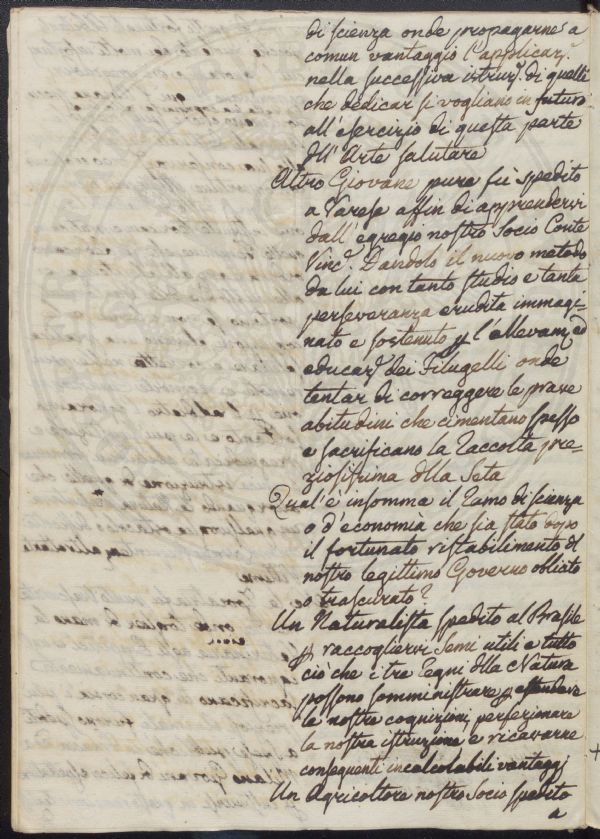 di scienza onde propagarne a
comun vantaggio l'applicaz.e
nella successiva istruz.e di quelli
che dedicar si vogliano in futuro
all'esercizio di questa parte
dll'Arte salutare
Altro Giovane pure fù spedito
a Varese affin di apprendervi
dall'egregio nostro Socio Conte
Vinc.o Dandolo il nuovo metodo
da lui con tanto studio e tanta
perseveranza erudita immagi=
nato e sostenuto p l'allevam.o ed
educaz.e dei Filugelli onde
tentar di correggere le prave
abitudini che cimentano spesso
e sacrificano la Raccolta pre=
ziosissima dlla Seta
Qual'è insomma il Ramo di scienza
o d'economia che sia stato dopo
il fortunato ristabilimento dl
nostro legittimo Governo obliato
o trascurato?
Un Naturalista spedito al Brasile
p raccogliervi Semi utili e tutto
ciò che i tre Regni dlla Natura
possono somministrare p estendere
le nostre cognizioni, perfezionare
la nostra istruzione e ricavarne
conseguenti incalcolabili vantaggj
Un Agricoltore nostro Socio spedito
a